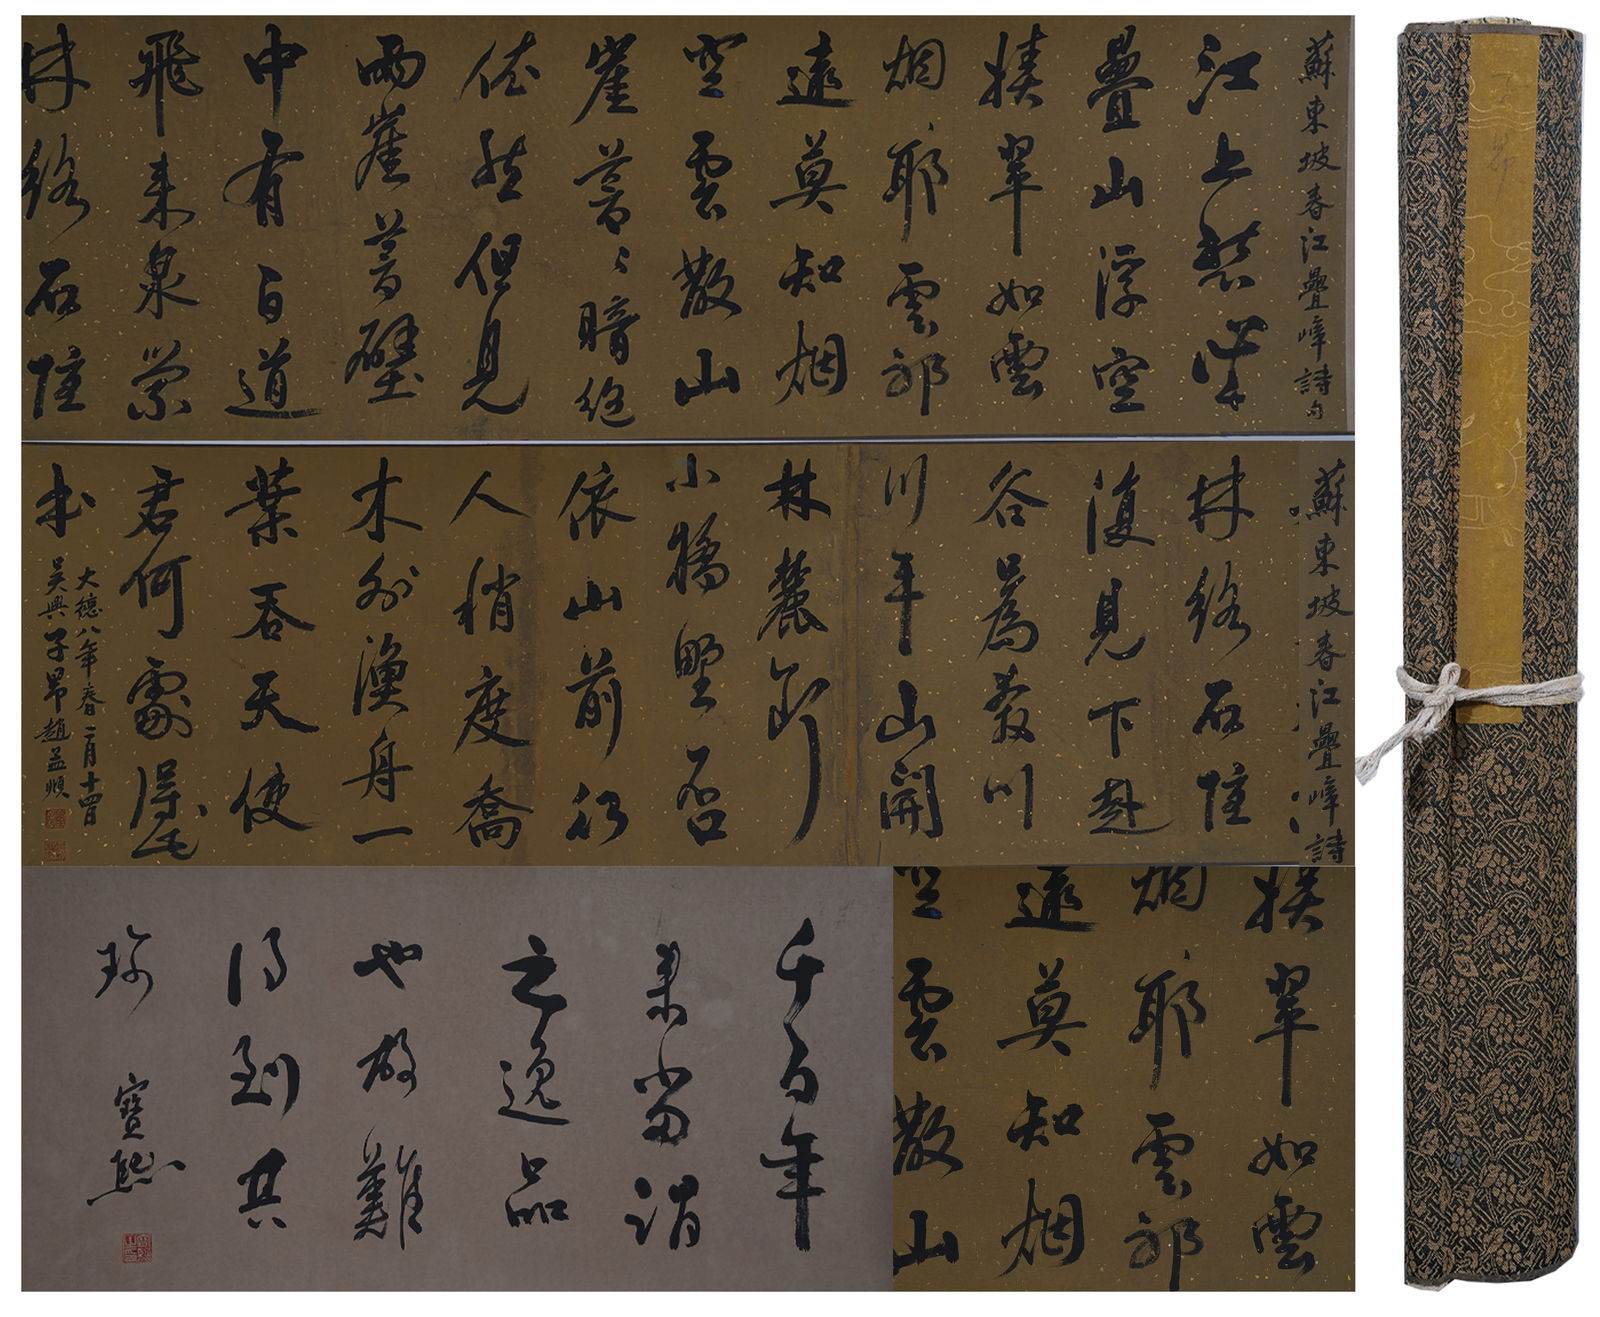 蘇東坡春江疊嶂詩句
江上愁心千
疊山浮空
積翠如雲
烟耶雲邪
遠莫知烟
空雲散山
崖蒼〻暗絶
依然但見
兩崖蒼壁
中有百道
飛來泉縈
林絡石隱
蘇東坡春江疊嶂詩
林絡石隱
復見下赴
谷為奔川
川平山開
林麓斷
小橋野店
依山前行
人稍度喬
木外漁舟一
葉吞天使
君何處得此
本
大德八年春二月十四日
吳興子昂趙孟頫
積翠如雲
烟耶雲邪
遠莫知烟
空雲散山
千百年
来當謂
之逸品
也故難
得到共
珍 寶熙